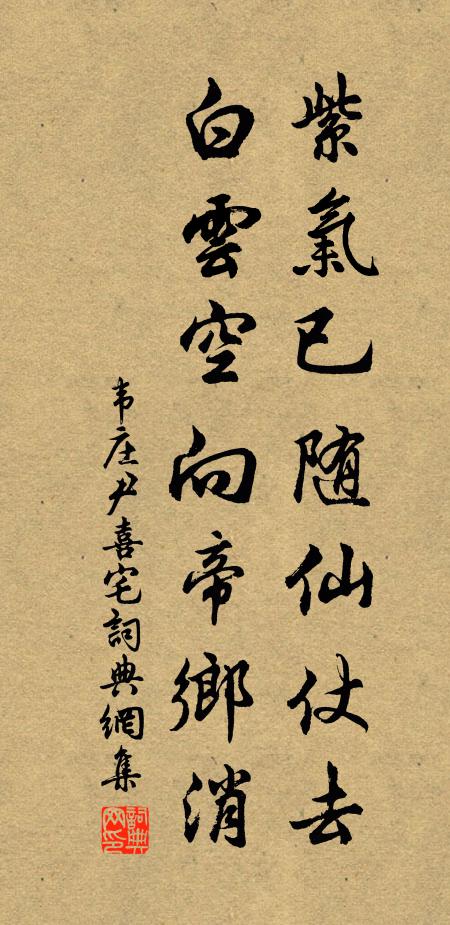 紫氣已随仙仗去
白雲空向帝鄉消
韦庄尹喜宅詞典網集
詞典网印